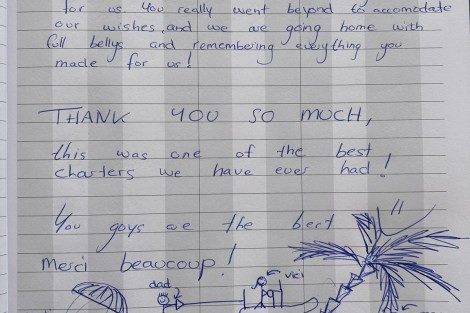 for us. You really went beyond to accomodate
our wishes, and we are going home with
full bellys and remembering everything you
made for us!
THANK YOU SO MUCH,
this was one of the best
charters we have ever had!
You guys are the best
Merci beaucoup!
dad